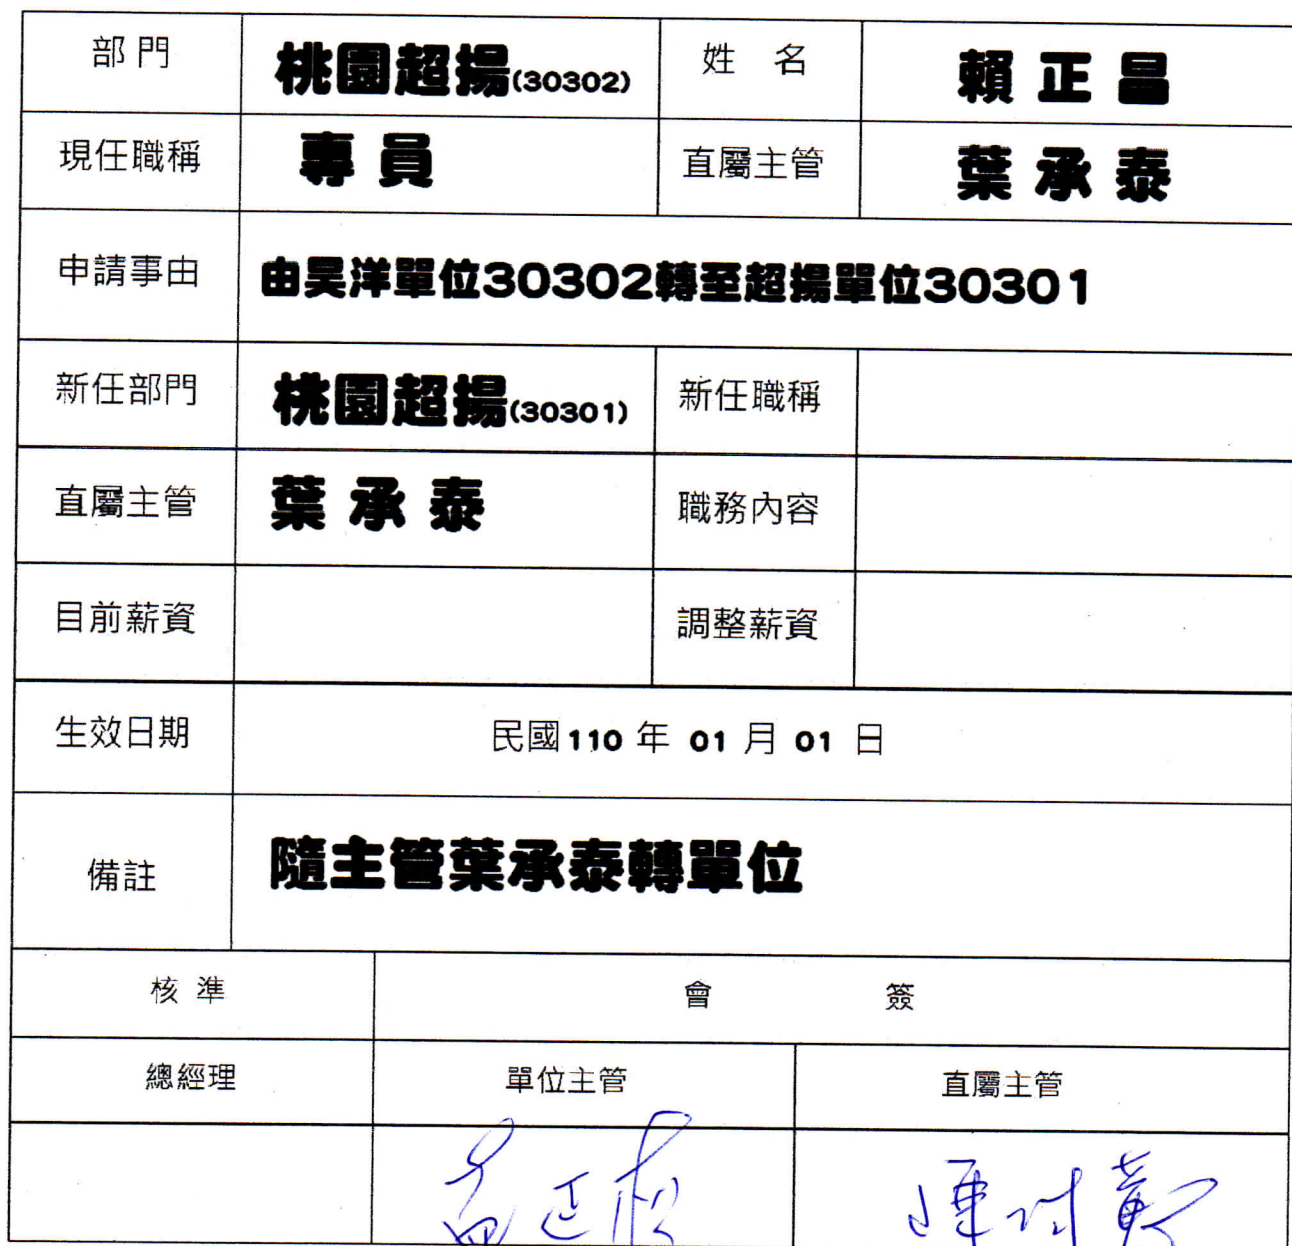 部 門 桃園超揚(30302) 姓 名 賴 正 昌
現任職稱 專 員 直屬主管 葉 承 泰
申請事由 由昊洋單位30302轉至超揚單位30301
新任部門 桃園超揚(30301) 新任職稱
直屬主管 葉 承 泰 職務內容
目前薪資 調整薪資
生效日期 民國110 年 01 月 01 日
備註 隨主管葉承泰轉單位
核 準 會 簽
總經理 單位主管 直屬主管